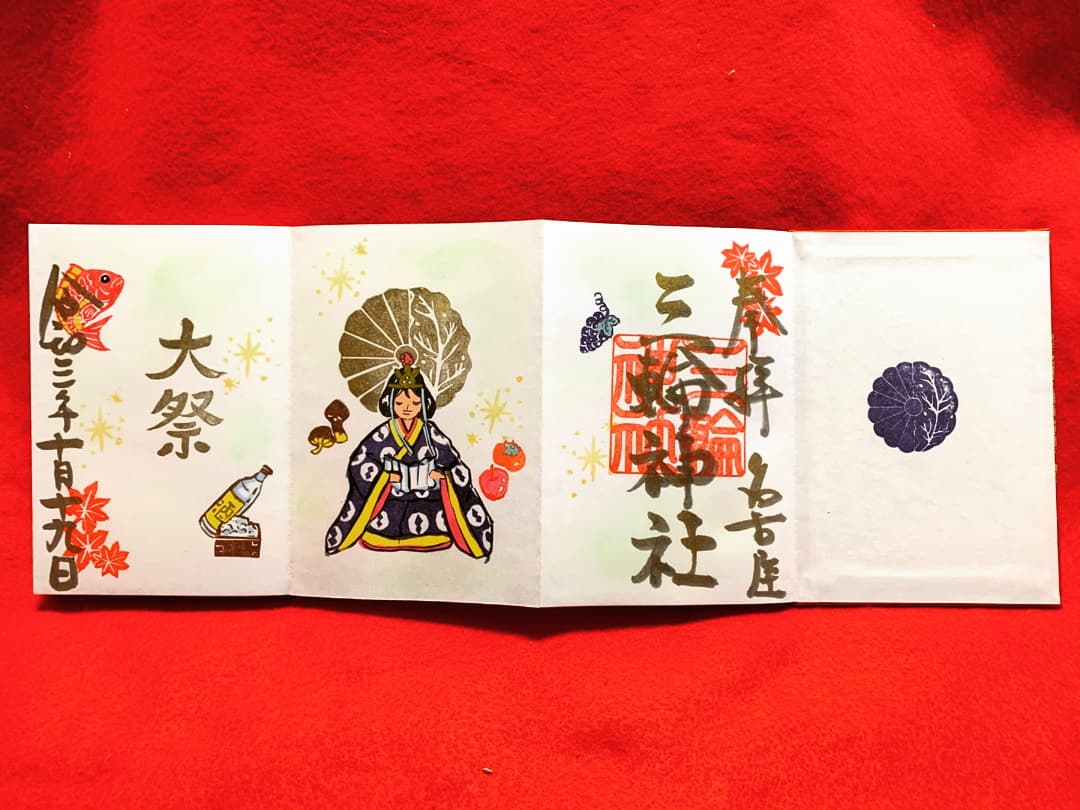 奉拝 名古屋
三輪神社
三輪
神社
大祭
令和三年十月十九日